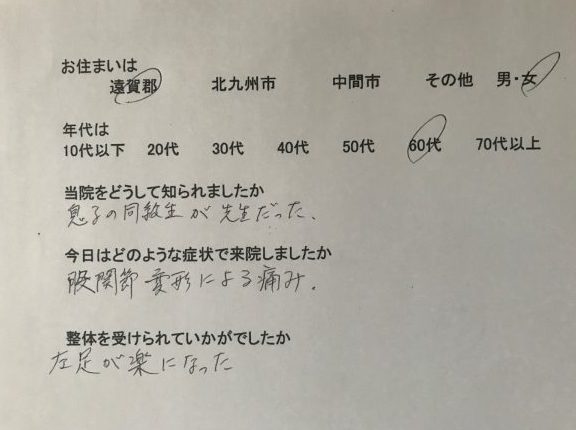 お住まいは
遠賀郡 北九州市 中間市 その他 男・女
年代は
10代以下 20代 30代 40代 50代 60代 70代以上
当院をどうして知られましたか
息子の同級生が先生だった.
今日はどのような症状で来院しましたか
股関節変形による痛み.
整体を受けられていかがでしたか
左足が楽になった